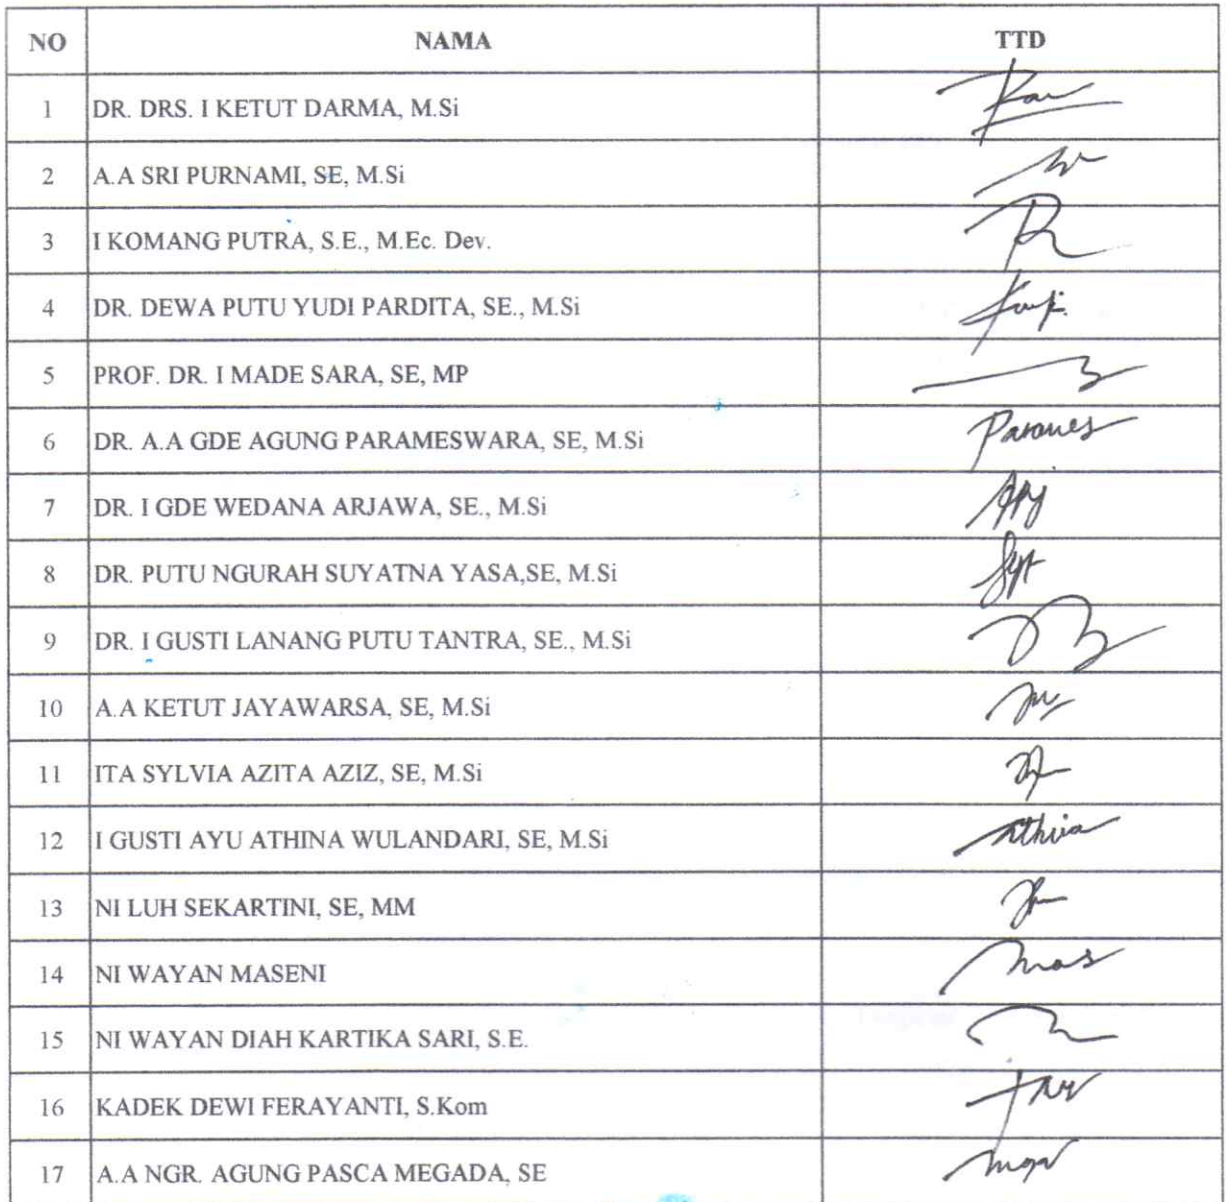 NO NAMA TTD
1 DR. DRS. I KETUT DARMA, M.Si
2 A.A SRI PURNAMI, SE, M.Si
3 I KOMANG PUTRA, S.E., M.Ec. Dev.
4 DR. DEWA PUTU YUDI PARDITA, SE., M.Si
5 PROF. DR. I MADE SARA, SE, MP
6 DR. A.A GDE AGUNG PARAMESWARA, SE, M.Si Parames
7 DR. I GDE WEDANA ARJAWA, SE., M.Si
8 DR. PUTU NGURAH SUYATNA YASA,SE, M.Si
9 DR. I GUSTI LANANG PUTU TANTRA, SE., M.Si
10 A.A KETUT JAYAWARSA, SE, M.Si
11 ITA SYLVIA AZITA AZIZ, SE, M.Si
12 I GUSTI AYU ATHINA WULANDARI, SE, M.Si
13 NI LUH SEKARTINI, SE, MM
14 NI WAYAN MASENI mas
15 NI WAYAN DIAH KARTIKA SARI, S.E.
16 KADEK DEWI FERAYANTI, S.Kom
17 A.A NGR. AGUNG PASCA MEGADA, SE